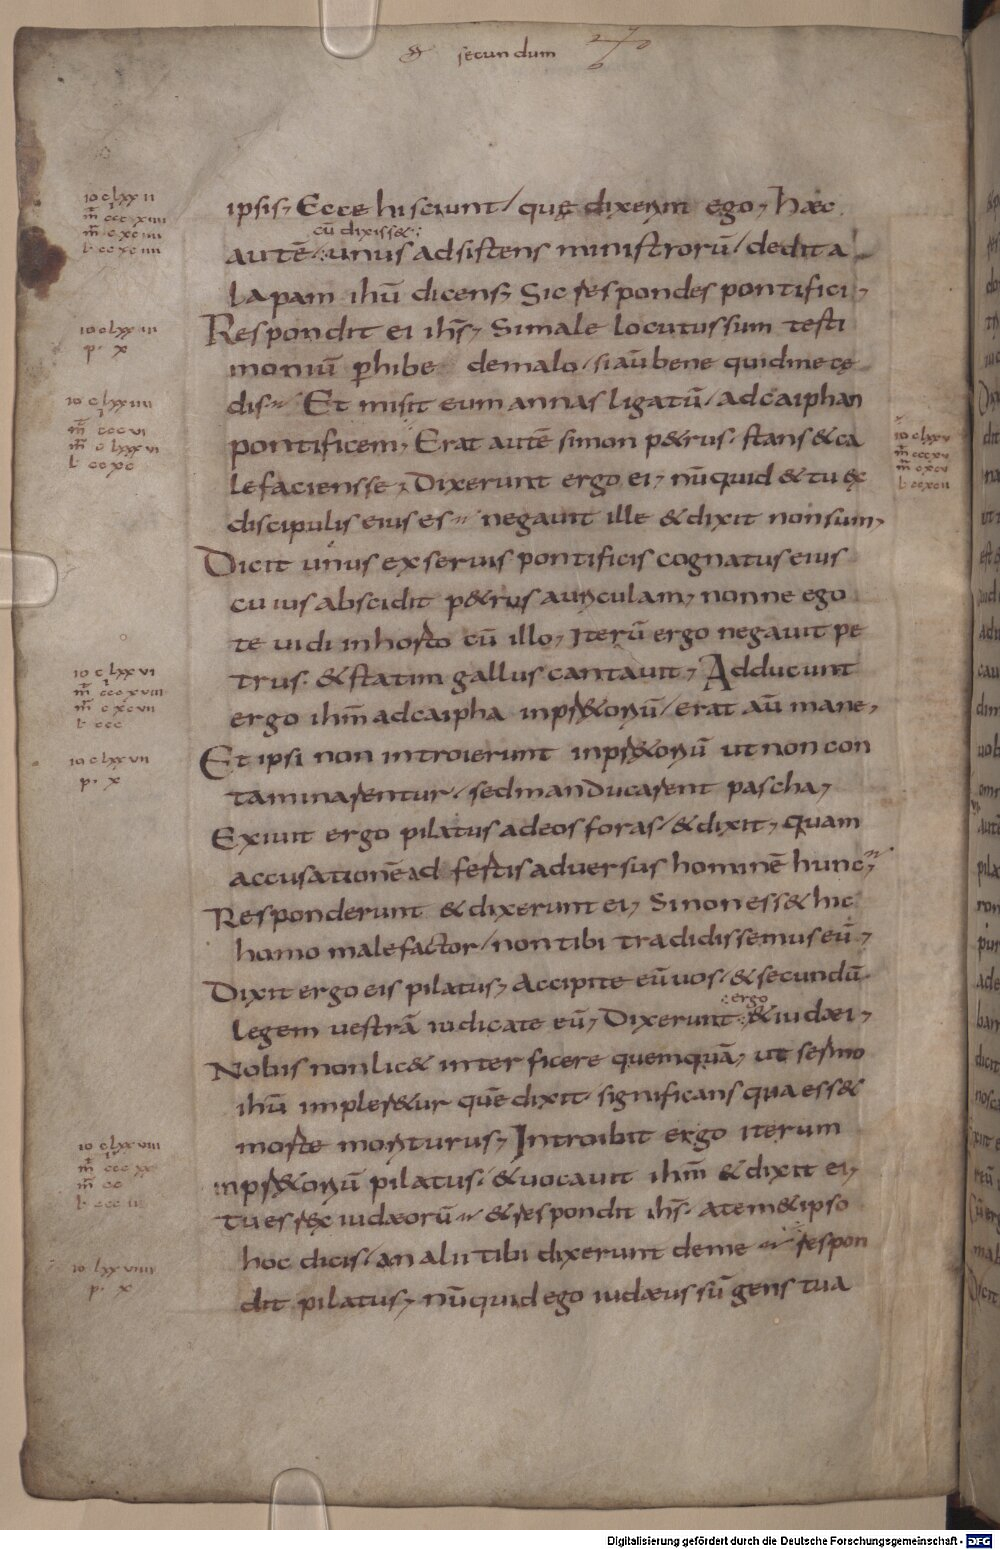 secundum
ipsis, Ecce hi sciunt/ quę dixerim ego, Hæc
cū dixisset
autē/ unus adsistens ministrorū/ dedit a
lapam ihū dicens, Sic respondes pontifici,
Respondit ei ihs̄, Si male locutus sum testi
moniū perhibe de malo/ si aū bene quid me cę
dis, Et misit eum annas ligatū/ ad caiphan
pontificem, Erat autē simon p&rus. stans & ca
lefaciens se, Dixerunt ergo ei, nūquid & tu ex
discipulis eius es, negauit ille & dixit non sum,
Dicit unus ex seruis pontificis cognatus eius
cuius abscidit p&rus auriculam, nonne ego
te uidi in horto cū illo, Iterū ergo negauit pe
trus. & statim gallus cantauit, Adducunt
ergo ihm̄ ad caipha in pr&oriū/ erat aū mane,
Et ipsi non introierunt in pr&oriū ut non con
taminarentur/ sed manducarent pascha,
Exiuit ergo pilatus ad eos foras/ & dixit, quam
accusationē ad fertis aduersus hominē hunc,
Responderunt & dixerunt ei, Si non ess& hic
homo malefactor/ non tibi tradidissemus eū,
Dixit ergo eis pilatus, Accipite eū uos/ & secundū
ergo
legem uestrā iudicate eū, Dixerunt & iudæi,
Nobis non lic& interficere quemquā, ut sermo
ihū impler&ur quē dixit/ significans qua ess&
morte moriturus, Introibit ergo iterum
in pr&oriū pilatus/ & uocauit ihm̄ & dixit ei,
tu es rex iudæorū & respondit ihs̄. a tem& ipso
hoc dicis/ an alii tibi dixerunt de me respon
dit pilatus, nūquid ego iudæus sū gens tua
10 clxxii
m̄ cccxiiii
m̄ cxciiii
l ccxciiii
10 clxxiii
p. x
10 clxxiiii
m̄ cccvi
m̄ clxxxvi
l ccxc
10 clxxv
m̄ cccxv
m̄ cxcv
l ccxcii
10 clxxvi
m̄ cccxviii
m̄ cxcvii
l ccc
10 clxxvii
p. x
10 clxxviii
m̄ cccxx
m̄ cc
l ccc ii
10 lxxviiii
p. x
Digitalisierung gefördert durch die Deutsche Forschungsgemeinschaft - DFG